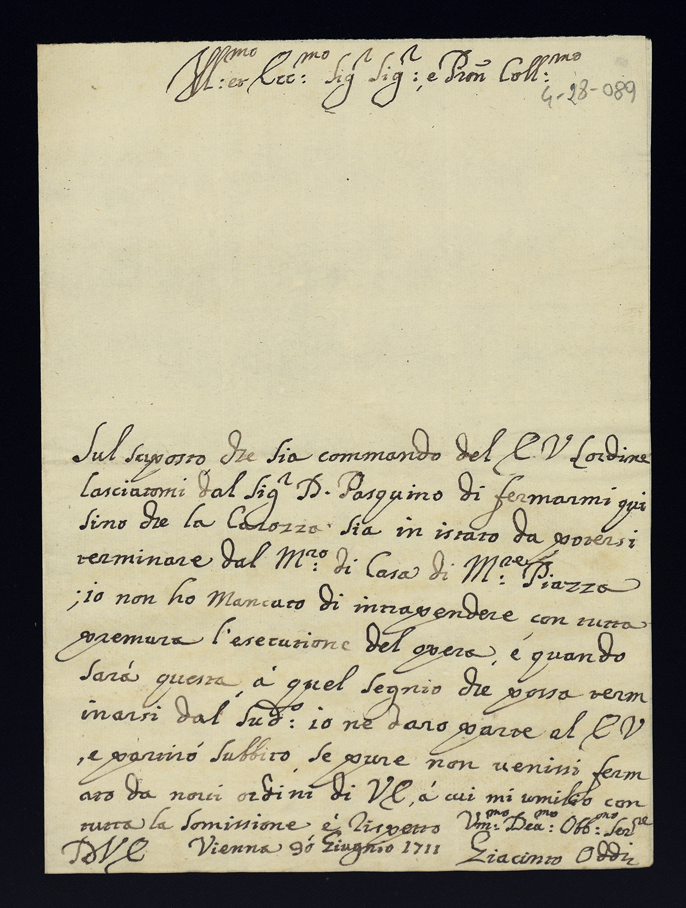 Ill:mo et Ecc:mo Sigr Sigr: e Pron Coll:mo
4-28-089
Sul suposto che sia commando del E. V. l'ordine
lasciatomi dal Sigr D. Pasquino di fermarmi qui
sino che la Carozza sia in istato da potersi
terminare dal Mro: di Casa di Mre: Piazza
; io non ho mancato di intrapendere con tutta
premura l'esecutione del opera, é quando
sará questa, á quel segnio che possa term
inarsi dal Sudo: io ne daro parte al E V
, e partiró subbito, se pure non venissi ferm
ato da novi ordini di VE, á cui mi umilio con
tutta la somissione é rispetto Vm:mo Deu:mo Obb:mo Serre
D V E Vienna 30 Giugnio 1711 Giacinto Oddi